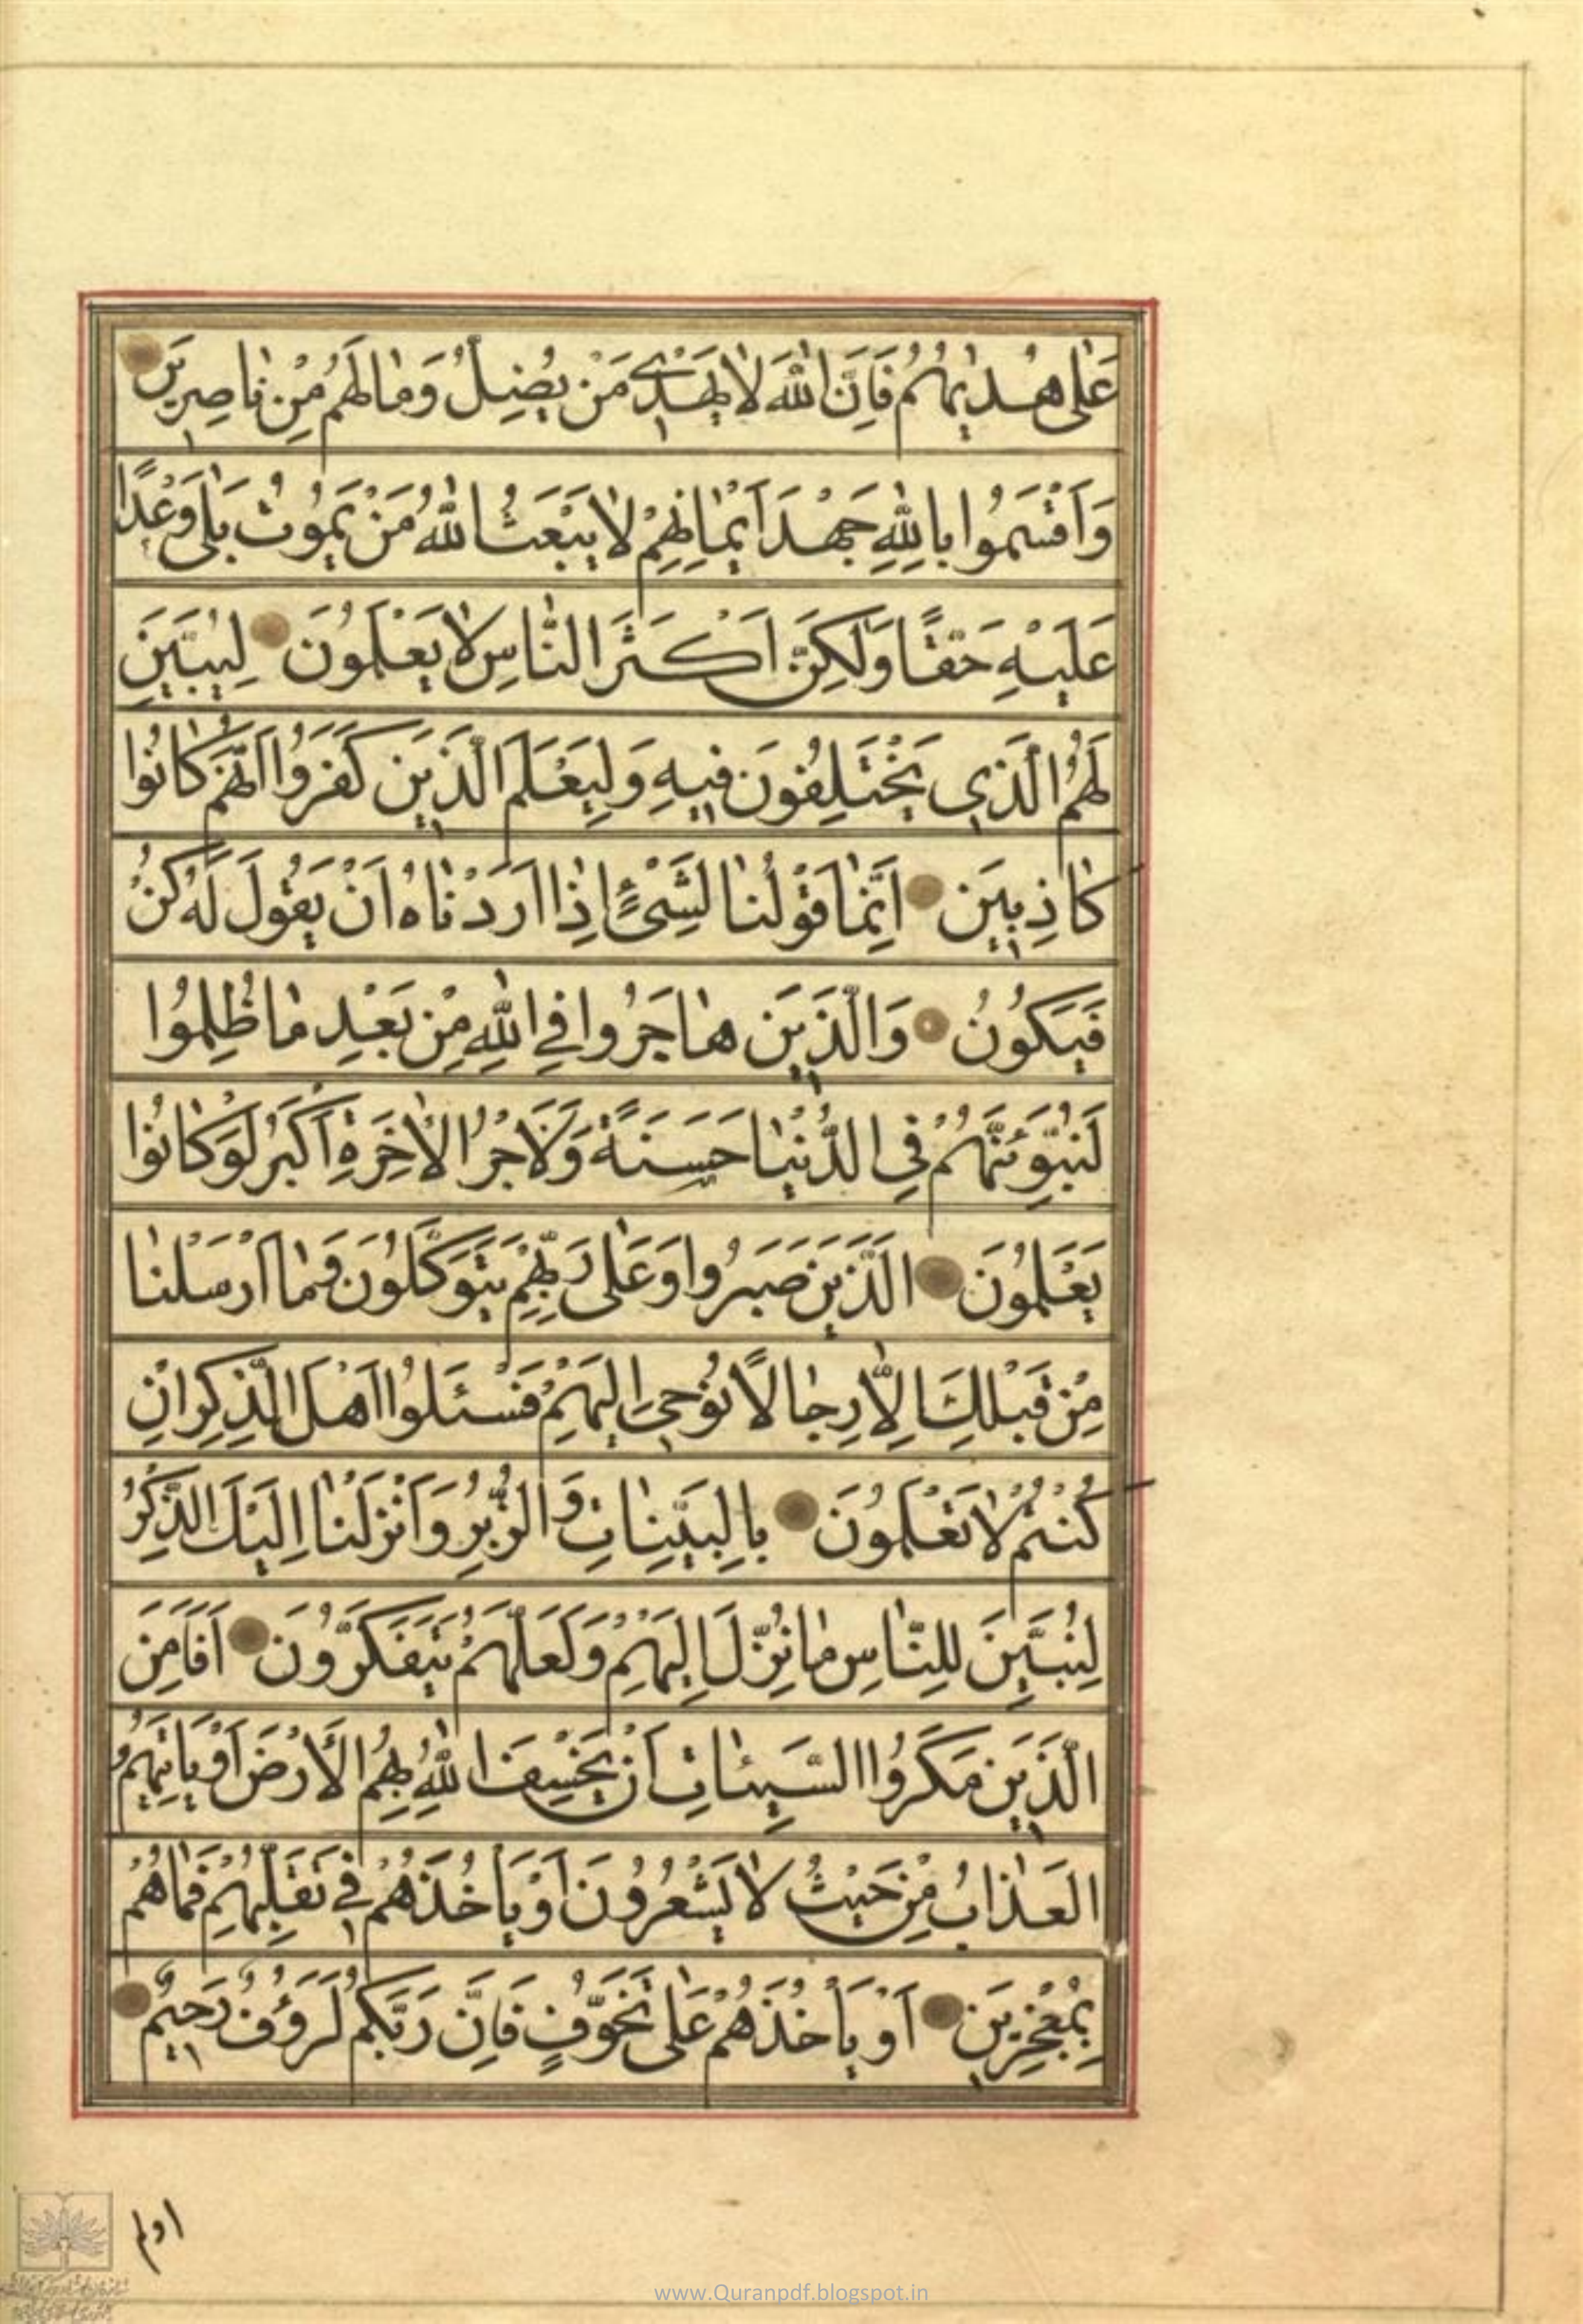 عَلٰى هُدٰيهُمْ فَاِنَّ اللّٰهَ لَا يَهْدٖى مَنْ يُضِلُّ وَمٰا لَهُمْ مِنْ نٰاصِرٖينَ
وَاَقْسَمُوا بِاللّٰهِ جَهْدَ اَيْمٰانِهِمْ لٰا يَبْعَثُ اللّٰهُ مَنْ يَمُوتُ بَلٰى وَعْدًا
عَلَيْهِ حَقًّا وَلٰكِنَّ اَكْثَرَ النّٰاسِ لٰا يَعْلَمُونَ لِيُبَيِّنَ
لَهُمُ الَّذٖى يَخْتَلِفُونَ فٖيهِ وَلِيَعْلَمَ الَّذٖينَ كَفَرُوا اَنَّهُمْ كٰانُوا
كٰاذِبٖينَ اِنَّمٰا قَوْلُنٰا لِشَىْءٍ اِذٰا اَرَدْنٰاهُ اَنْ يَقُولَ لَهُ كُنْ
فَيَكُونُ وَالَّذٖينَ هٰاجَرُوا فِى اللّٰهِ مِنْ بَعْدِ مٰا ظُلِمُوا
لَنُبَوِّئَنَّهُمْ فِى الدُّنْيٰا حَسَنَةً وَلَاَجْرُ الْاٰخِرَةِ اَكْبَرُ لَوْ كٰانُوا
يَعْلَمُونَ الَّذٖينَ صَبَرُوا وَعَلٰى رَبِّهِمْ يَتَوَكَّلُونَ وَمٰا اَرْسَلْنٰا
مِنْ قَبْلِكَ اِلّٰا رِجٰالًا نُوحٖى اِلَيْهِمْ فَسْئَلُوا اَهْلَ الذِّكْرِ اِنْ
كُنْتُمْ لٰا تَعْلَمُونَ بِالْبَيِّنٰاتِ وَالزُّبُرِ وَاَنْزَلْنٰا اِلَيْكَ الذِّكْرَ
لِتُبَيِّنَ لِلنّٰاسِ مٰا نُزِّلَ اِلَيْهِمْ وَلَعَلَّهُمْ يَتَفَكَّرُونَ اَفَاَمِنَ
الَّذٖينَ مَكَرُوا السَّيِّئٰاتِ اَنْ يَخْسِفَ اللّٰهُ بِهِمُ الْاَرْضَ اَوْ يَاْتِيَهُمُ
الْعَذٰابُ مِنْ حَيْثُ لٰا يَشْعُرُونَ اَوْ يَاْخُذَهُمْ فٖى تَقَلُّبِهِمْ فَمٰا هُمْ
بِمُعْجِزٖينَ اَوْ يَاْخُذَهُمْ عَلٰى تَخَوُّفٍ فَاِنَّ رَبَّكُمْ لَرَؤُفٌ رَحٖيمٌ
اولم
www.Quranpdf.blogspot.in